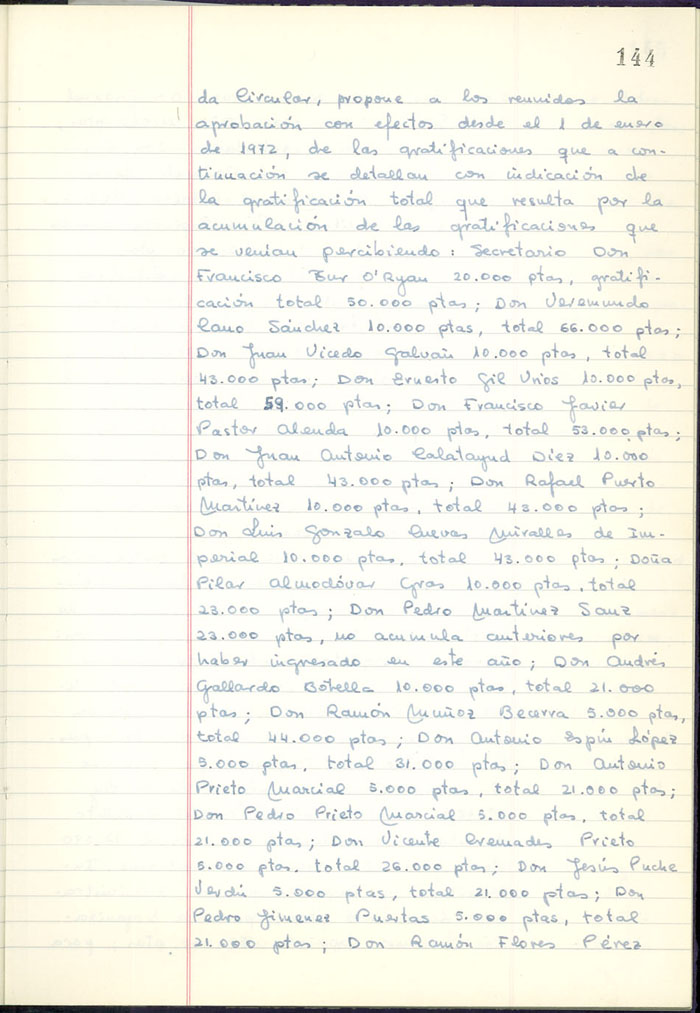 144
da Circular, propone a los reunidos la
aprobación con efectos desde el 1 de enero
de 1972, de las gratificaciones que a con-
tinuación se detallan con indicación de
la gratificación total que resulta por la
acumulación de las gratificaciones que
se venían percibiendo: Secretario Don
Francisco Zur O'Ryan 20.000 ptas, gratifi-
cación total 50.000 ptas; Don Veremundo
Cano Sánchez 10.000 ptas, total 66.000 ptas;
Don Juan Vicedo Galvañ 10.000 ptas, total
43.000 ptas; Don Ernesto Gil Urios 10.000 ptas,
total 59.000 ptas; Don Francisco Javier
Pastor Alenda 10.000 ptas, total 53.000 ptas;
Don Juan Antonio Calatayud Díez 10.000
ptas, total 43.000 ptas; Don Rafael Puerto
Martínez 10.000 ptas, total 43.000 ptas;
Don Luis Gonzalo Cuevas Mirallas de Im-
perial 10.000 ptas, total 43.000 ptas; Doña
Pilar Almodóvar Gras 10.000 ptas, total
23.000 ptas; Don Pedro Martínez Sanz
23.000 ptas, no acumula anteriores por
haber ingresado en este año; Don Andrés
Gallardo Botella 10.000 ptas, total 21.000
ptas; Don Ramón Muñoz Becerra 5.000 ptas,
total 44.000 ptas; Don Antonio Espín López
5.000 ptas, total 31.000 ptas; Don Antonio
Prieto Marcial 5.000 ptas, total 21.000 ptas;
Don Pedro Prieto Marcial 5.000 ptas, total
21.000 ptas; Don Vicente Cremades Prieto
5.000 ptas. total 26.000 ptas; Don Jesús Puche
Verdú 5.000 ptas, total 21.000 ptas; Don
Pedro Jimenez Puertas 5.000 ptas, total
21.000 ptas; Don Ramón Flores Pérez